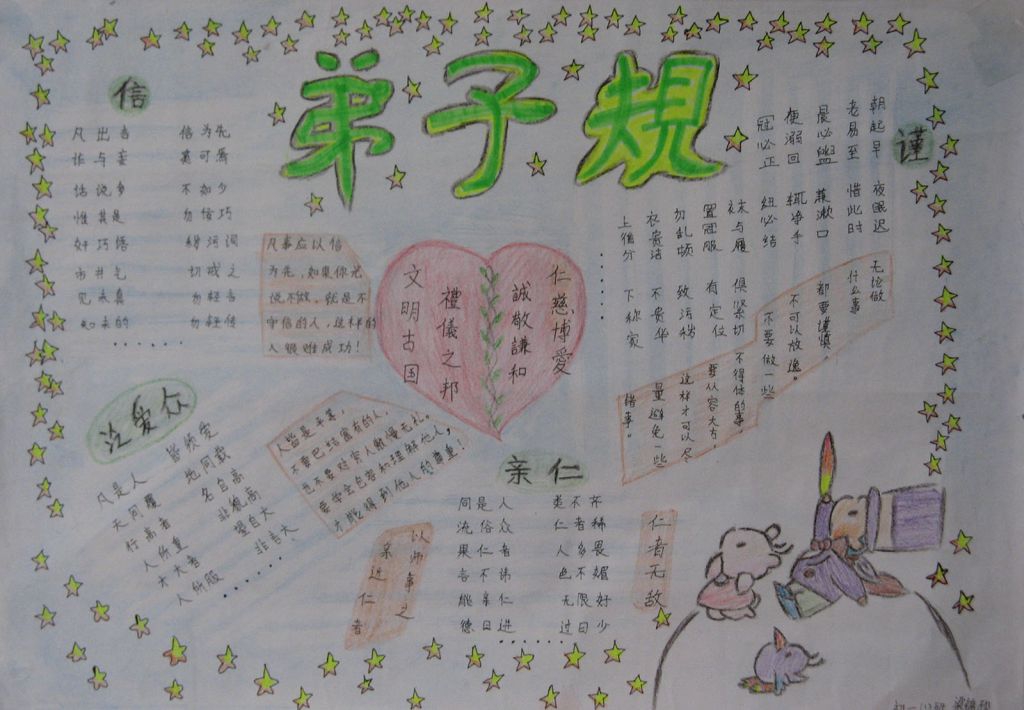 弟子規
信
凡出言 信为先
诈与妄 奚可焉
话说多 不如少
惟其是 勿佞巧
奸巧语 秽污词
市井气 切戒之
见未真 勿轻言
知未的 勿轻传
......
凡事应以信
为先，如果你光
说不做，就是不
守信的人，这样的
人很难成功！
仁慈博愛
誠敬謙和
禮儀之邦
文明古国
谨
朝起早 夜眠迟
老易至 惜此时
晨必盥 兼漱口
便溺回 辄净手
冠必正 纽必结
袜与履 俱紧切
置冠服 有定位
勿乱顿 致污秽
衣贵洁 不贵华
上循分 下称家
......
无论做
什么事
都要谨慎。
不可以放逸。
不要做一些
不得体的事
要从容大方
这样才可以尽
量避免一些
错事。
泛爱众
凡是人 皆须爱
天同覆 地同载
行高者 名自高
人所重 非貌高
才大者 望自大
人所服 非言大
......
人皆是平等，
不要巴结富有的人，
也不要对穷人傲慢无礼。
要学会包容和理解他人，
才能得到他人的尊重！
亲仁
同是人 类不齐
流俗众 仁者稀
果仁者 人多畏
言不讳 色不媚
能亲仁 无限好
德日进 过日少
......
以师事之
亲近仁者
仁者无敌
初一(1)班